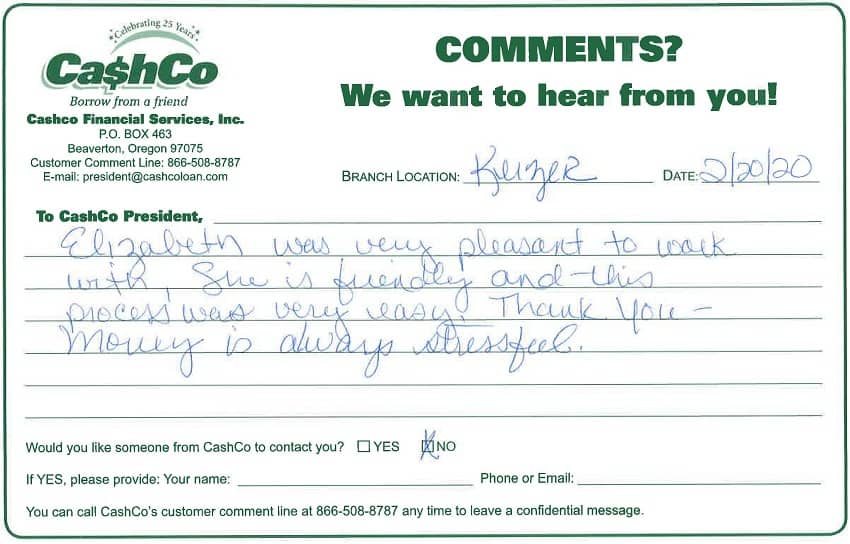 Celebrating 25 Years
Ca$hCo
Borrow from a friend
Cashco Financial Services, Inc.
P.O. BOX 463
Beaverton, Oregon 97075
Customer Comment Line: 866-508-8787
E-mail: president@cashcoloan.com
COMMENTS?
We want to hear from you!
BRANCH LOCATION: Keizer DATE: 2/20/20
To CashCo President,
Elizabeth was very pleasant to work
with. She is friendly and this
process was very easy. Thank You -
Money is always stressful.
Would you like someone from CashCo to contact you? ☐ YES ☒ NO
If YES, please provide: Your name: Phone or Email:
You can call CashCo's customer comment line at 866-508-8787 any time to leave a confidential message.